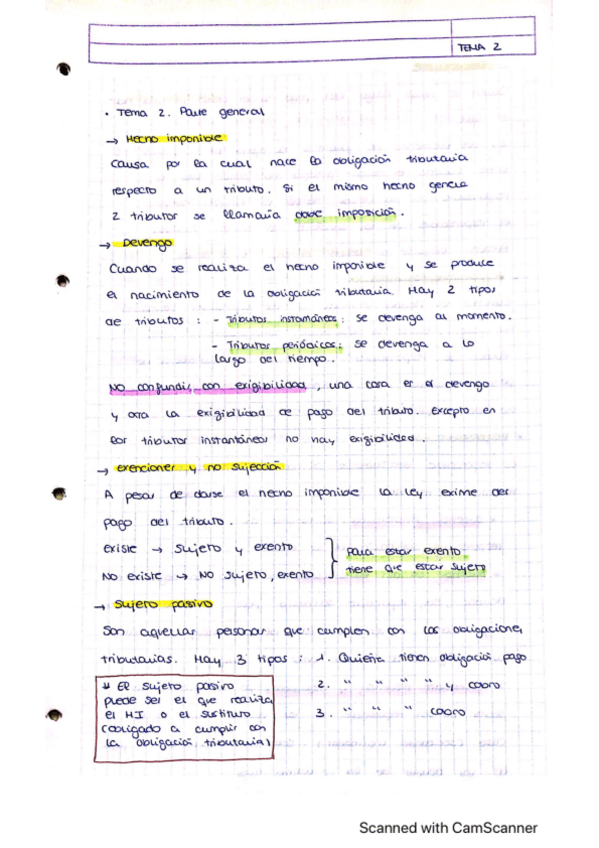 TEMA 2
• Tema 2. Parte general
→ Hecho imponible
Causa por la cual nace la obligación tributaria
respecto a un tributo. Si el mismo hecho genera
2 tributos se llamaría doble imposición.
→ Devengo
Cuando se realiza el hecho imponible y se produce
el nacimiento de la obligación tributaria. Hay 2 tipos
de tributos : - Tributos instantáneos: se devenga al momento.
- Tributos periódicos: se devenga a lo
largo del tiempo.
NO confundir con exigibilidad, una cosa es el devengo
y otra la exigibilidad de pago del tributo. Excepto en
los tributos instantáneos no hay exigibilidad.
→ exenciones y no sujección
A pesar de darse el hecho imponible la ley exime del
pago del tributo.
existe → sujeto y exento
NO existe → NO sujeto, exento
para estar exento
tiene que estar sujeto
→ Sujeto pasivo
Son aquellas personas que cumplen con las obligaciones
tributarias. Hay 3 tipos : 1. Quienes tienen obligación pago
2. " " " " y cobro
3. " " " cobro
* El sujeto pasivo
puede ser el que realiza
el HI o el sustituto
(obligado a cumplir con
la obligación tributaria)
Scanned with CamScanner